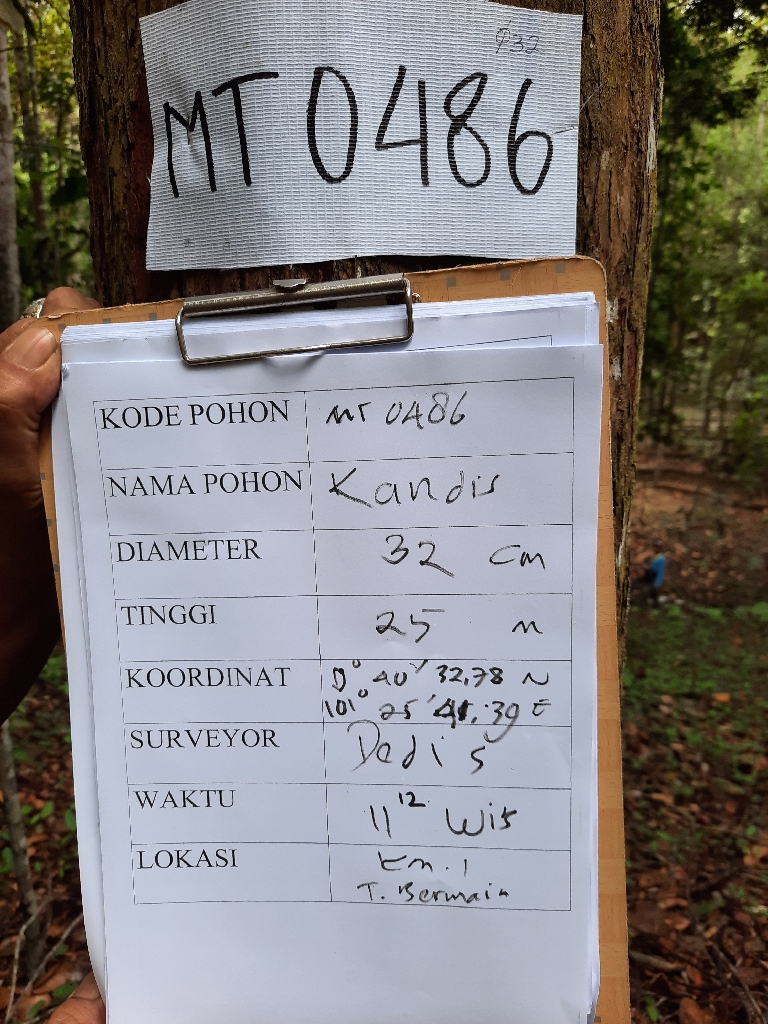 932
MT 0486
KODE POHON MT 0486
NAMA POHON Kandis
DIAMETER 32 cm
TINGGI 25 m
KOORDINAT 0° 40' 32,78 N
101° 25' 41,39 E
SURVEYOR Dedi S
WAKTU 11 12 Wib
LOKASI Km. 1
T. Bermain